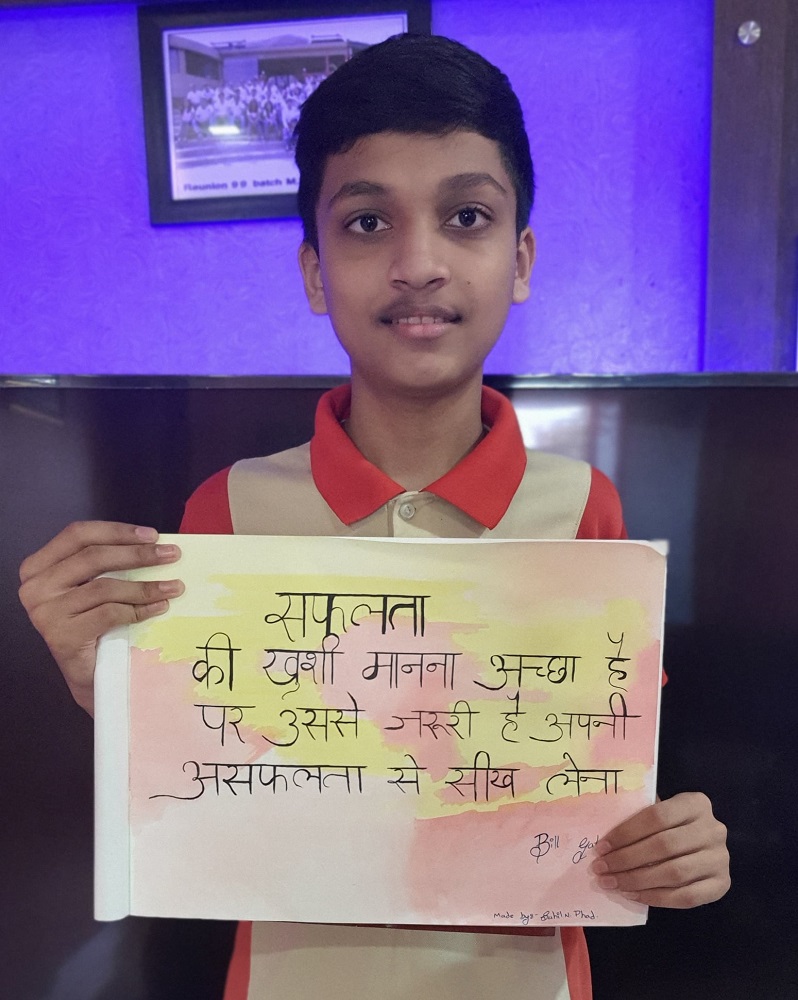 Reunion 99 batch M.
सफलता
की खुशी मानना अच्छा है
पर उससे जरूरी है अपनी
असफलता से सीख लेना
Bill
Made by:- Phad.